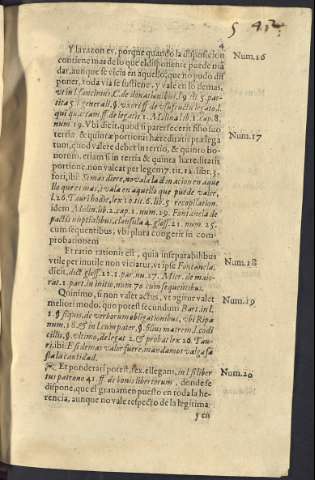 5 4.
4
Y la razon es, porque quando la disposicion
contiene mas de lo que el disponente puede man
dar, aunque se vicia en aquello, que no pudo dis
poner, toda via se sustiene, y vale en lo demas,
vt in l. sancimus, C. de donationibus, l. 5. par-
tita 5.
num. 19. Vbi dicit, quod si pater fecerit filio suo
tertio & quintæ portionis hæreditatis prælega
tum, quod valere debet in tertio, & quinto bo-
norum, etiam si in tertia & quinta hæreditatis
portione, non valeat per legem 7. tit. 12. lib. 3.
fori, ibi: Si mas diere, no vala la donacion en aque
llo que es mas, y vala en aquello que puede valer,
l. 26. Tauri hodie, lex 10. tit. 6. lib. 5. recopilation.
Idem Molin. lib. 2. cap. 1. num. 29. Fontanela de
pactis nuptialibus, clausula 4. gloss. 21. num. 25.
cum sequentibus, vbi plura congerit in com-
probationem
Et ratio rationis est, quia inseparabilibus
vtile per inutile non viciatur, vt ipse Fontanela
dicit, dict. gloss. 21. par. nu. 27.
rat. 1. part. in initio, num 70. cum sequentibus.
Quinimo, si non valet actus, vt agitur valet
meliori modo, quo potest secundum Bart. in l.
1. §. si quis, de verborum obligationibus, vbi Ripa
num. 18. & in l. cum pater, §. filius matrem
cillis, §. vltimo, de legat. 2. & probat lex 26. Tau-
ri, ibi: E si de mas valor fuere, mandamos valga fa
sta la cantidad.
Et ponderari potest, lex, ellegans, in l. si liber
tus patrono 41. ff. de bonis libertorum, donde se
dispone, que el grauamen puesto en toda la he-
rencia, aunque no vale respecto de la legitima,
y en
Num. 16
Num. 17
Num. 18
Num. 19
Num. 20